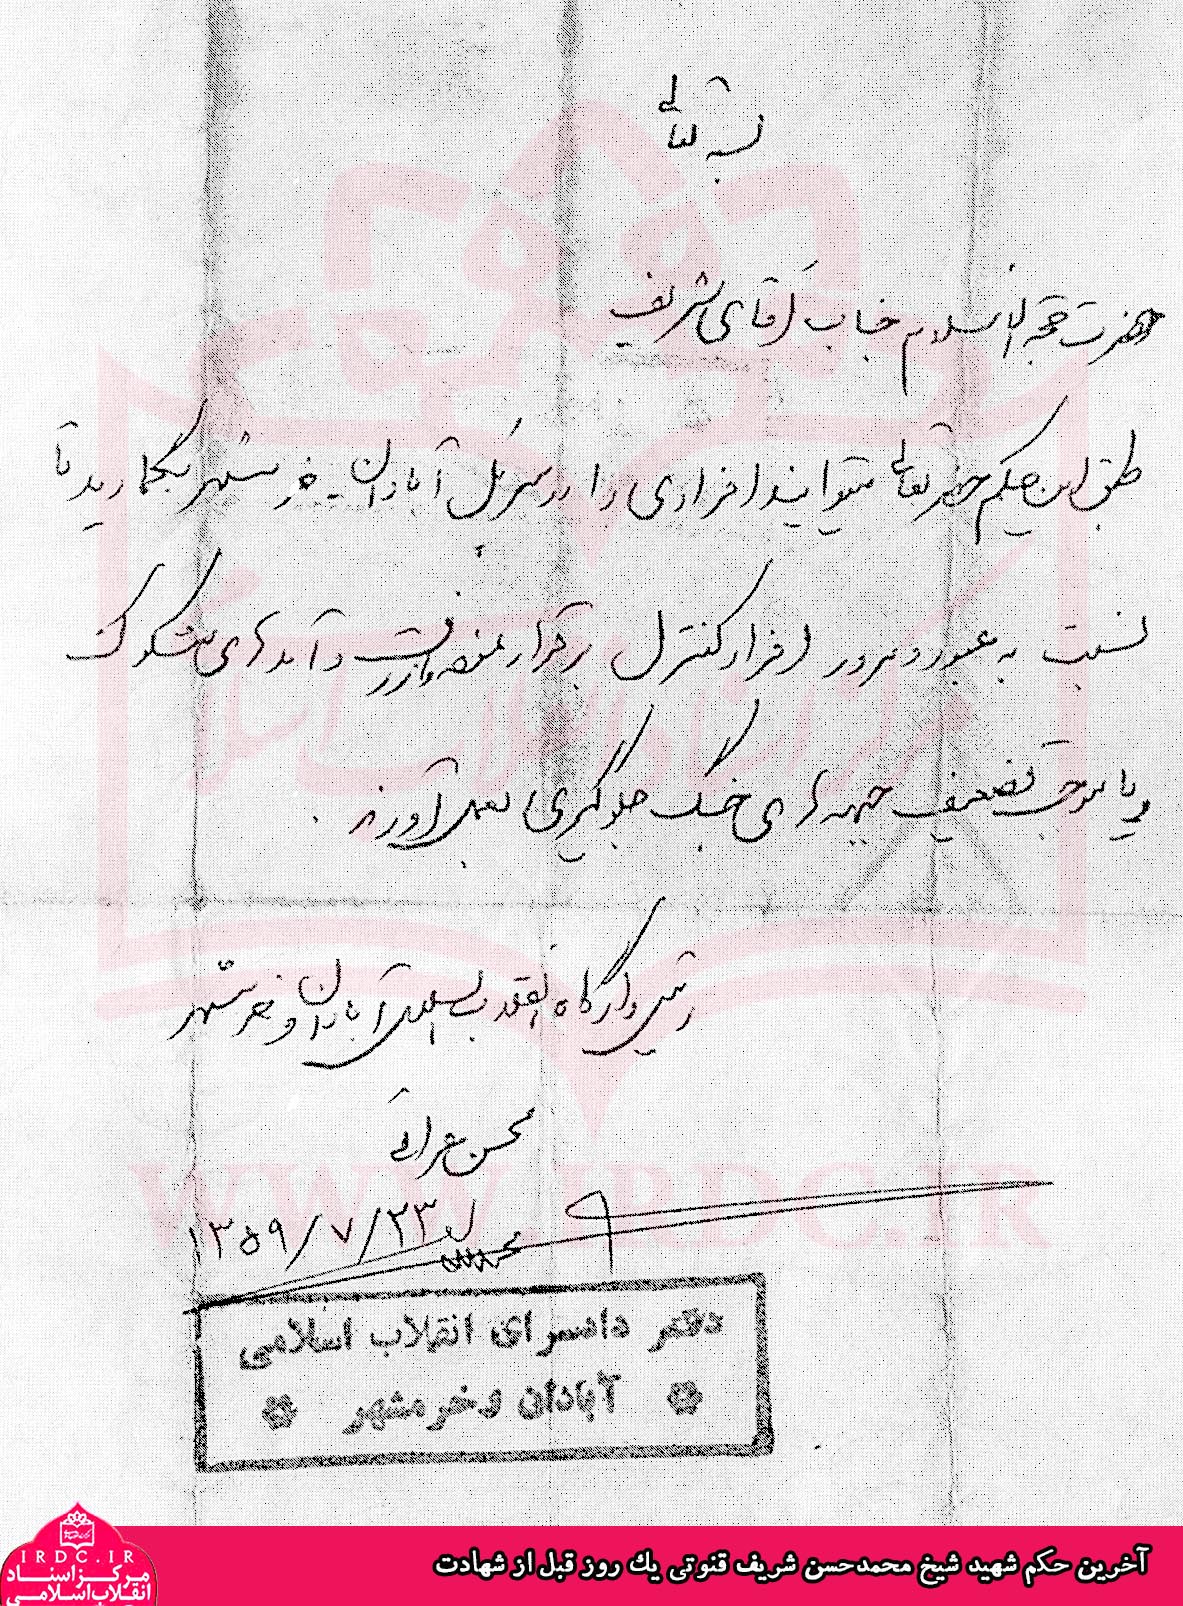 بسمه تعالی
حضرت حجة الاسلام جناب آقای شریف
طبق این حکم حضرتعالی میتوانید افرادی را در سرپل آبادان - خرمشهر بگمارید تا
نسبت به عبور و مرور افراد کنترل برقرار نموده و از رفت و آمدهای مشکوک
و یا موجب تضعیف جبهه های جنگ جلوگیری بعمل آورند.
رئیس دادگاه انقلاب اسلامی آبادان و خرمشهر
محسن عراقی
۱۳۵۹/۷/۲۳
دفتر دادسرای انقلاب اسلامی
آبادان و خرمشهر
مرکز اسناد انقلاب اسلامی
WWW.IRDC.IR
آخرین حکم شهید شیخ محمدحسن شریف قنوتی یك روز قبل از شهادت
IRDC.IR
مرکز اسناد
انقلاب اسلامی